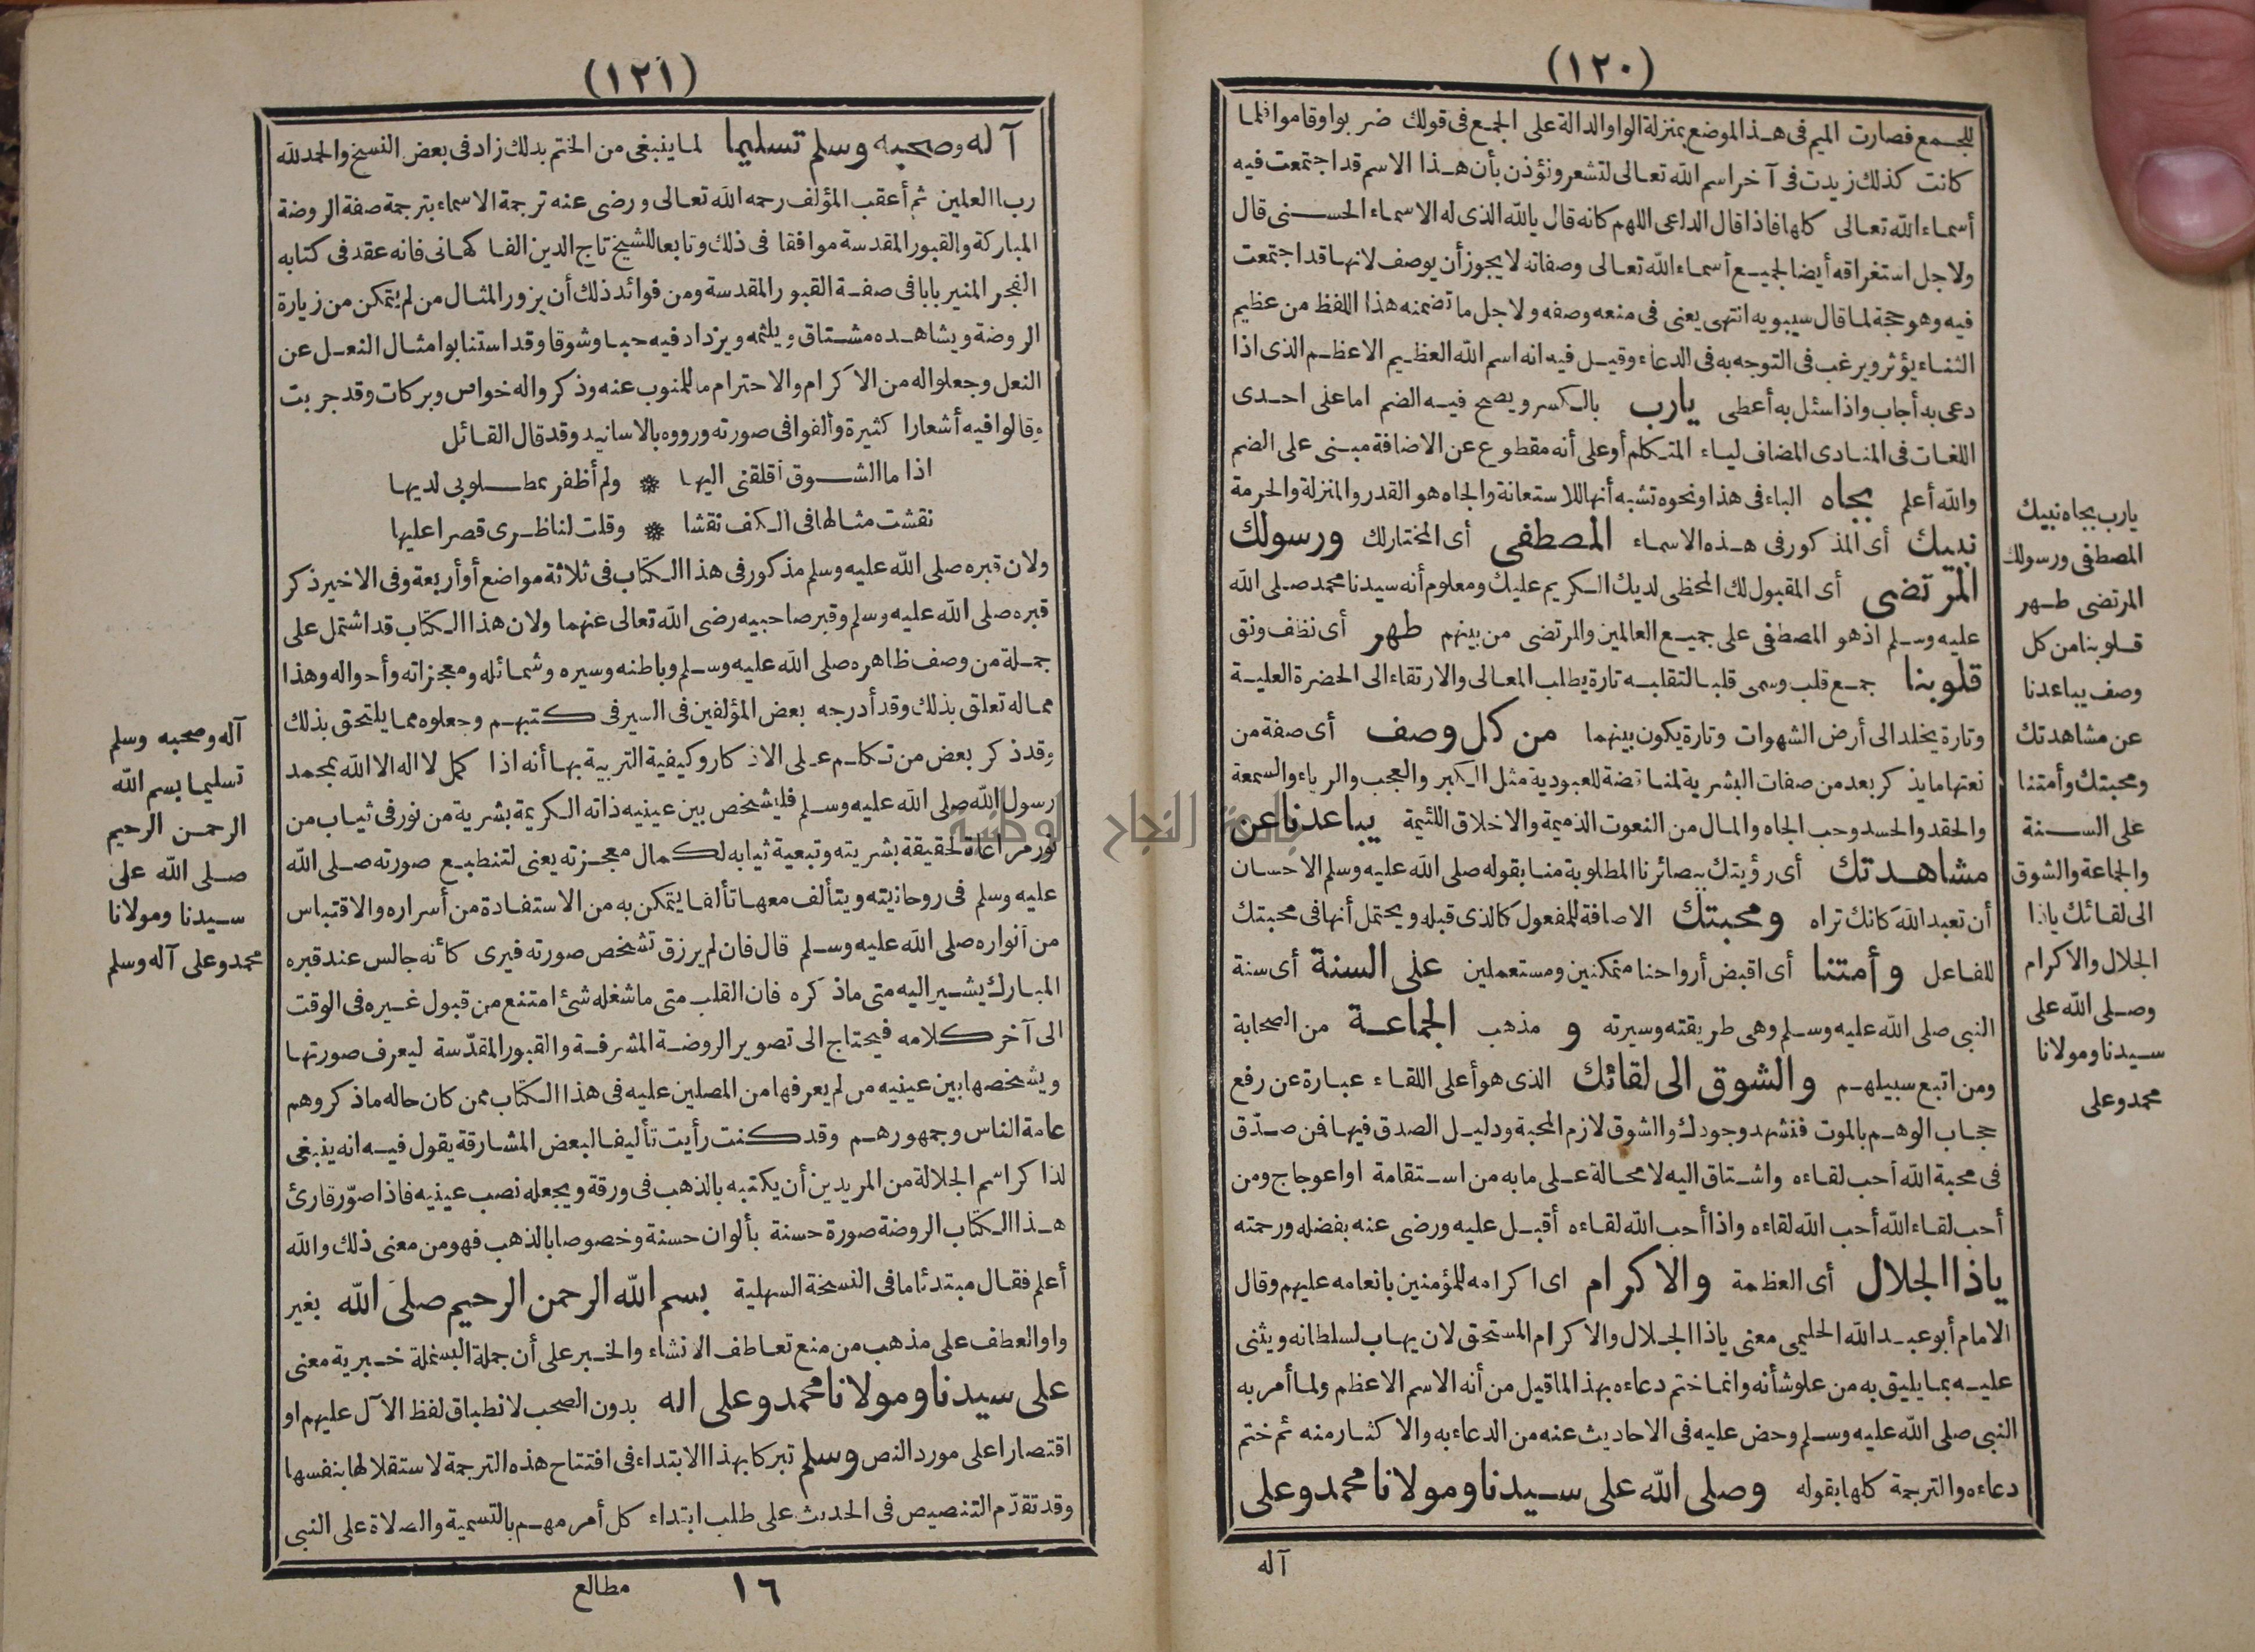 (١٢٠)
للجمع فصارت الميم فى هذا الموضع بمنزلة الواو الدالة على الجمع فى قولك ضربوا وقاموا فلما
كانت كذلك زيدت فى آخر اسم الله تعالى لتشعر وتؤذن بأن هذا الاسم قد اجتمعت فيه
أسماء الله تعالى كلها فاذا قال الداعى اللهم كانه قال يا لله الذى له الاسماء الحسنى قال
ولاجل استغراقه أيضا لجميع أسماء الله تعالى وصفاته لا يجوز أن يوصف لانها قد اجتمعت
فيه وهو حجة لما قال سيبويه انتهى يعنى فى منعه وصفه ولاجل ما تضمنه هذا اللفظ من عظيم
الثناء يؤثر ويرغب فى التوجه به فى الدعاء وقيل فيه انه اسم الله العظيم الاعظم الذى اذا
دعى به أجاب واذا سئل به أعطى يارب بالكسر ويصح فيه الضم اما على احدى
اللغات فى المنادى المضاف لياء المتكلم أو على أنه مقطوع عن الاضافة مبنى على الضم
والله أعلم بجاه الباء فى هذا ونحوه تشبه أنها للاستعانة والجاه هو القدر والمنزلة والحرمة
نبيك أى المذكور فى هذه الاسماء المصطفى أى المختار لك ورسولك
المرتضى أى المقبول لك المحظى لديك الكريم عليك ومعلوم أنه سيدنا محمد صلى الله
عليه وسلم اذ هو المصطفى على جميع العالمين والمرتضى من بينهم طهر أى نظف ونق
قلوبنا جمع قلب وسمى قلبا لتقلبه تارة يطلب المعالى والارتقاء الى الحضرة العلية
وتارة يخلد الى أرض الشهوات وتارة يكون بينهما من كل وصف أى صفة من
نعتها ما يذكر بعد من صفات البشرية لمناقضة للعبودية مثل الكبر والعجب والرياء والسمعة
والحقد والحسد وحب الجاه والمال من النعوت الذميمة والاخلاق اللئيمة يباعدنا عن
مشاهدتك أى رؤيتك ببصائرنا المطلوبة منا بقوله صلى الله عليه وسلم الاحسان
أن تعبد الله كانك تراه ومحبتك الاضافة للمفعول كالذى قبله ويحتمل أنها فى محبتك
للفاعل وأمتنا أى اقبض أرواحنا متمكنين ومستعملين على السنة أى سنة
النبى صلى الله عليه وسلم وهى طريقته وسيرته و مذهب الجماعة من الصحابة
ومن اتبع سبيلهم والشوق الى لقائك الذى هو أعلى اللقاء عبارة عن رفع
حجاب الوهم بالموت فنشهد وجودك والشوق لازم المحبة ودليل الصدق فيها فمن صدّق
فى محبة الله أحب لقاءه واشتاق اليه لا محالة على ما به من استقامة او اعوجاج ومن
أحب لقاء الله أحب الله لقاءه واذا أحب الله لقاءه أقبل عليه ورضى عنه بفضله ورحمته
ياذا الجلال أى العظمة والاكرام اى اكرامه للمؤمنين بانعامه عليهم وقال
الامام أبو عبد الله الحليمى معنى ياذا الجلال والاكرام المستحق لان يهاب لسلطانه ويثنى
عليه بما يليق به من علو شأنه وانما ختم دعاءه بهذا لما قيل من أنه الاسم الاعظم ولما أمر به
النبى صلى الله عليه وسلم وحض عليه فى الاحاديث عنه من الدعاء به والاكثار منه ثم ختم
دعاءه والترجمة كلها بقوله وصلى الله على سيدنا ومولانا محمد وعلى
آله
يارب بجاه نبيك
المصطفى ورسولك
المرتضى طهر
قلوبنا من كل
وصف يباعدنا
عن مشاهدتك
ومحبتك وأمتنا
على السنة
والجماعة والشوق
الى لقائك ياذا
الجلال والاكرام
وصلى الله على
سيدنا ومولانا
محمد وعلى
(١٢١)
آله وصحبه وسلم تسليما لما ينبغى من الختم بذلك زاد فى بعض النسخ والحمد لله
رب العلمين ثم أعقب المؤلف رحمه الله تعالى ورضى عنه ترجمة الاسماء بترجمة صفة الروضة
المباركة والقبور المقدسة موافقا فى ذلك وتابعا للشيخ تاج الدين الفاكهانى فانه عقد فى كتابه
الفجر المنير بابا فى صفة القبور المقدسة ومن فوائد ذلك أن يزور المثال من لم يتمكن من زيارة
الروضة ويشاهده مشتاق ويلثمه ويزداد فيه حبا وشوقا وقد استنابوا مثال النعل عن
النعل وجعلوا له من الاكرام والاحترام ما للمنوب عنه وذكروا له خواص وبركات وقد جربت
وقالوا فيه أشعارا كثيرة وألفوا فى صورته ورووه بالاسانيد وقد قال القائل
اذا ما الشوق أقلقنى اليها ❋ ولم أظفر بمطلوبى لديها
نقشت مثالها فى الكف نقشا ❋ وقلت لناظرى قصرا عليها
ولان قبره صلى الله عليه وسلم مذكور فى هذا الكتاب فى ثلاثة مواضع أو أربعة وفى الاخير ذكر
قبره صلى الله عليه وسلم وقبر صاحبيه رضى الله تعالى عنهما ولان هذا الكتاب قد اشتمل على
جملة من وصف ظاهره صلى الله عليه وسلم وباطنه وسيره وشمائله ومعجزاته وأحواله وهذا
مما له تعلق بذلك وقد أدرجه بعض المؤلفين فى السير فى كتبهم وجعلوه مما يلتحق بذلك
وقد ذكر بعض من تكلم على الاذكار وكيفية التربية بها أنه اذا كمل لا اله الا الله بمحمد
رسول الله صلى الله عليه وسلم فليشخص بين عينيه ذاته الكريمة بشرية من نور فى ثياب من
نور مراعاة لحقيقة بشريته وتبعية ثيابه لكمال معجزته يعنى لتنطبع صورته صلى الله
عليه وسلم فى روحانيته ويتألف معها تألفا يتمكن به من الاستفادة من أسراره والاقتباس
من أنواره صلى الله عليه وسلم قال فان لم يرزق تشخص صورته فيرى كأنه جالس عند قبره
المبارك يشير اليه متى ما ذكره فان القلب متى ما شغله شئ امتنع من قبول غيره فى الوقت
الى آخر كلامه فيحتاج الى تصوير الروضة المشرفة والقبور المقدّسة ليعرف صورتها
ويشخصها بين عينيه من لم يعرفها من المصلين عليه فى هذا الكتاب ممن كان حاله ما ذكر وهم
عامة الناس وجمهورهم وقد كنت رأيت تأليفا لبعض المشارقة يقول فيه انه ينبغى
لذاكر اسم الجلالة من المريدين أن يكتبه بالذهب فى ورقة ويجعله نصب عينيه فاذا صوّر قارئ
هذا الكتاب الروضة صورة حسنة بألوان حسنة وخصوصا بالذهب فهو من معنى ذلك والله
أعلم فقال مبتدئا ما فى النسخة السهلية بسم الله الرحمن الرحيم صلى الله بغير
واو العطف على مذهب من منع تعاطف الانشاء والخبر على أن جملة البسملة خبرية معنى
على سيدنا ومولانا محمد وعلى اله بدون الصحب لانطباق لفظ الآل عليهم او
اقتصارا على مورد النص وسلم تبركا بهذا الابتداء فى افتتاح هذه الترجمة لاستقلالها بنفسها
وقد تقدّم التنصيص فى الحديث على طلب ابتداء كل أمر مهم بالتسمية والصلاة على النبى
١٦ مطالع
آله وصحبه وسلم
تسليما بسم الله
الرحمن الرحيم
صلى الله على
سيدنا ومولانا
محمد وعلى آله وسلم
جامعة النجاح الوطنية